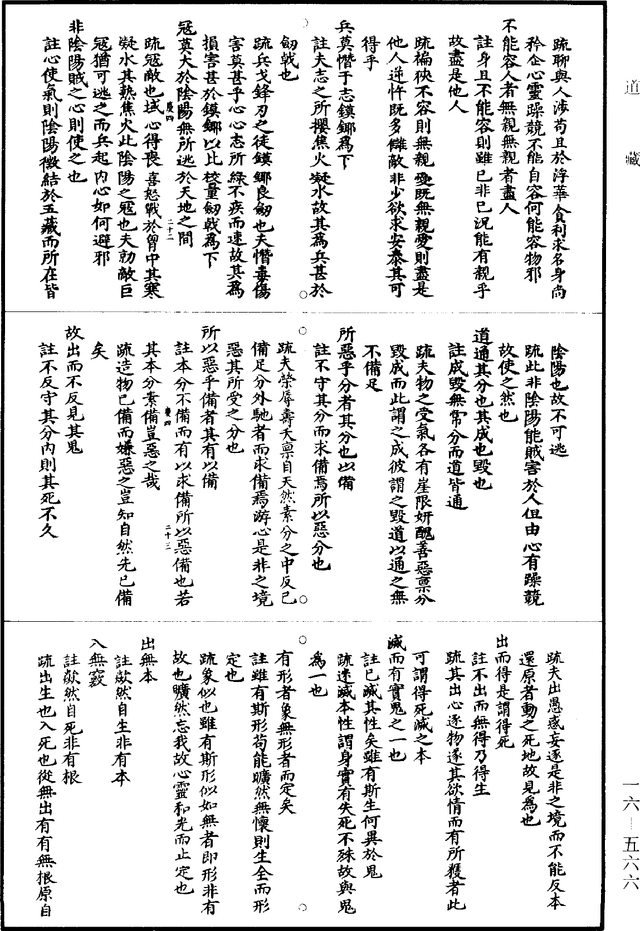 道藏
疏聊與人涉苟且於浮華貪利求名身尚
矜企心靈躁競不能自容何能容物邪
不能容人者無親無親者盡人
註身且不能容則雖已非已況能有親乎
故盡是他人
疏褊狹不容則無親愛既無親愛則盡是
他人逆忤既多讎敵非少欲求安泰其可
得乎
兵莫憯于志鏌鎁為下
註夫志之所攖焦火凝水故其為兵甚於
劒戟也
疏兵戈鋒刃之徒鏌鎁良劒也夫憯毒傷
害莫甚乎心心志所緣不疾而速故其為
損害甚於鏌鎁以比校量劒戟為下
寇莫大於陰陽無所逃於天地之間
慶四 二十二
疏寇敵也域心得喪喜怒戰於胷中其寒
凝水其熱焦火此陰陽之寇也夫勍敵巨
寇猶可逃之而兵起內心如何避邪
非陰陽賊之心則使之也
註心使氣則陰陽徵結於五藏而所在皆
陰陽也故不可逃
疏此非陰陽能賊害於人但由心有躁競
故使之然也
道通其分也其成也毀也
註成毀無常分而道皆通
疏夫物之受氣各有崖限妍醜善惡禀分
毀成而此謂之成彼謂之毀道以通之無
不備足
所惡乎分者其分也以備
註不守其分而求備焉所以惡分也
疏夫榮辱壽夭禀自天然素分之中反已
備足分外馳者而求備焉游心是非之境
惡其所受之分也
所以惡乎備者其有以備
慶四 二十三
註本分不備而有以求備所以惡備也若
其本分素備豈惡之哉
疏造物已備而嫌惡之豈知自然先已備
矣
故出而不反見其鬼
註不反守其分內則其死不久
疏夫出愚惑妄逐是非之境而不能反本
還原者動之死地故見為也
出而得是謂得死
註不出而無得乃得生
疏其出心逐物遂其欲情而有所獲者此
可謂得死滅之本
滅而有實鬼之一也
註已滅其性矣雖有斯生何異於鬼
疏遠滅本性謂身實有失死不殊故與鬼
為一也
有形者象無形者而定矣
註雖有斯形苟能曠然無懷則生全而形
定也
疏象似也雖有斯形似如無者即形非有
故也曠然忘我故心靈和光而止定也
出無本
註歘然自生非有本
入無竅
註歘然自死非有根
疏出生也入死也從無出有有無根原自
一六—五六六